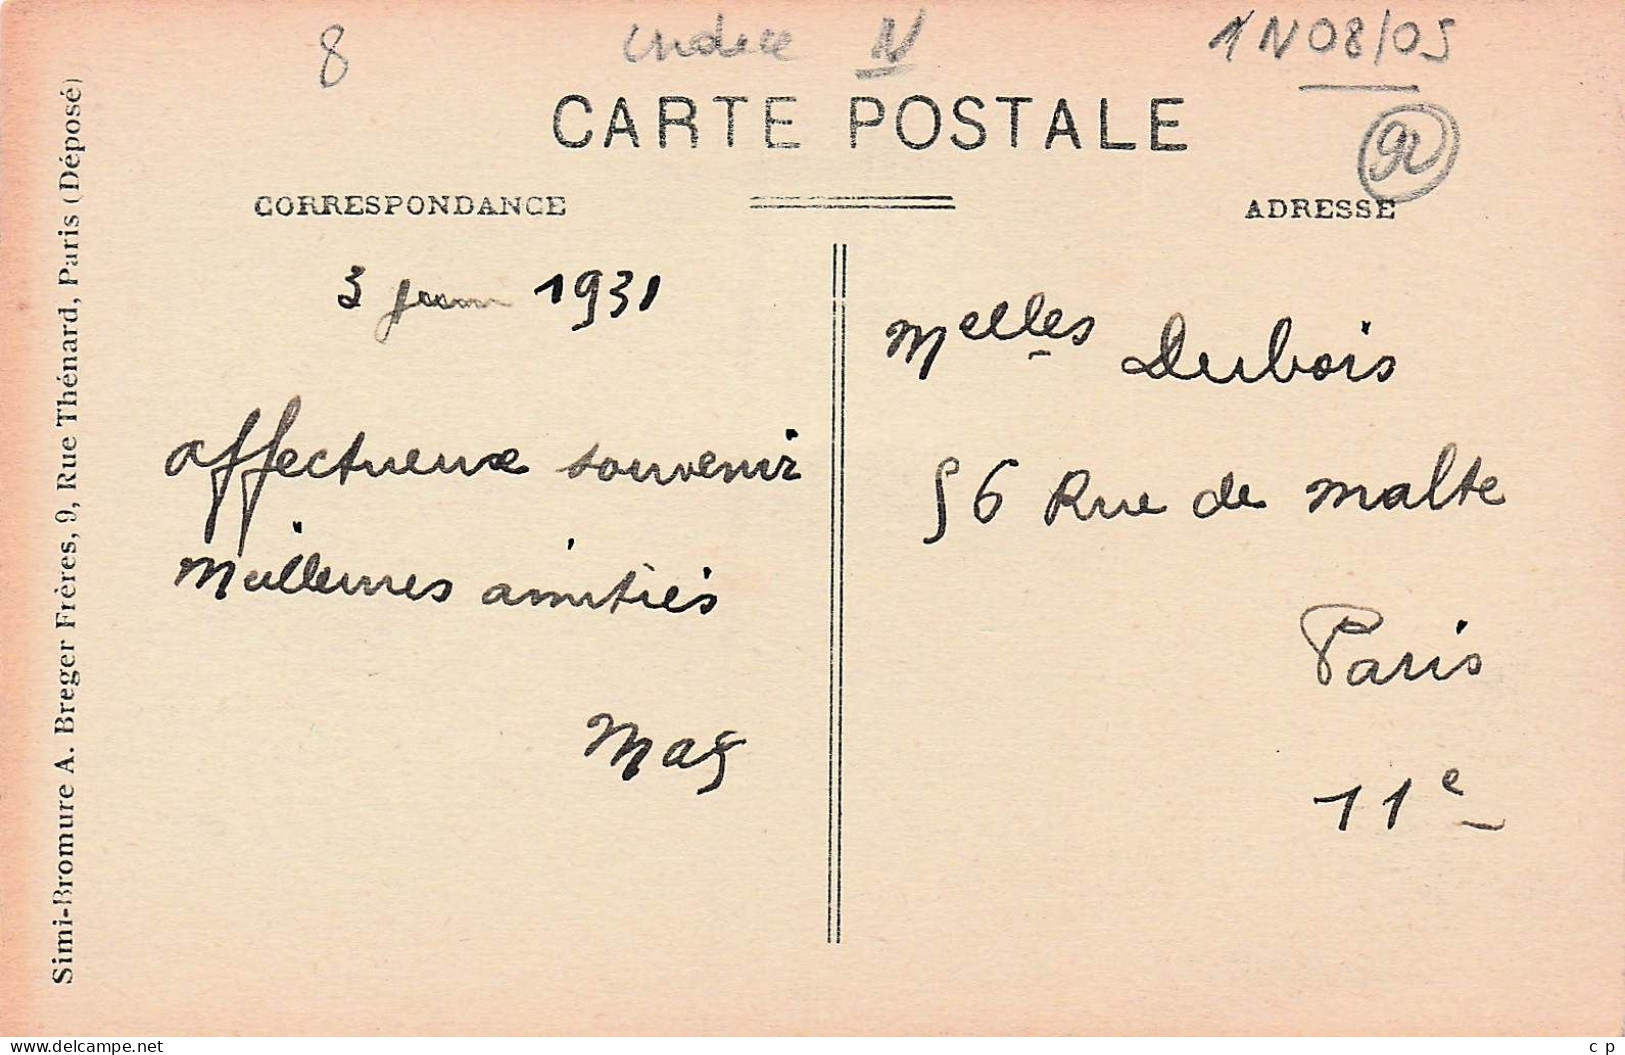 8
Indice N
1N08/05
CARTE POSTALE
92
CORRESPONDANCE
ADRESSE
3 juin 1931
affectueux souvenir
Meilleures amitiés
Mag
Melles Dubois
56 Rue de malte
Paris
11e
Simi-Bromure A. Breger Frères, 9, Rue Thénard, Paris (Déposé)
www.delcampe.net
c p